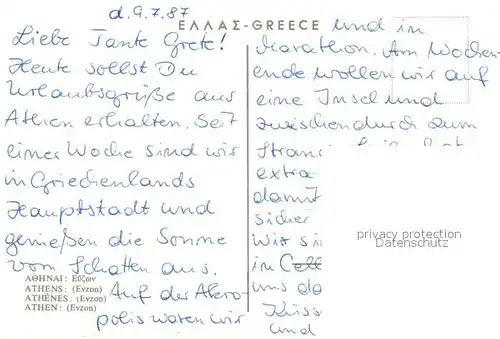 d. 9.7.87
ΕΛΛΑΣ-GREECE
Liebe Tante Grete!
Heute sollst Du
Urlaubsgrüße aus
Athen erhalten. Seit
einer Woche sind wir
in Griechenlands
Hauptstadt und
genießen die Sonne
vom Schatten aus.
ΑΘΗΝΑΙ: Εύζων
ATHENS: (Evzon)
ATHÈNES: (Evzon)
ATHEN: (Evzon)
Auf der Akro-
polis waren wir
und in
Marathon. Am Wochen-
ende wollen wir auf
eine Insel und
zwischendurch zum
extra
damit
sicher
Wir
in
uns
und
privacy protection
Datenschutz